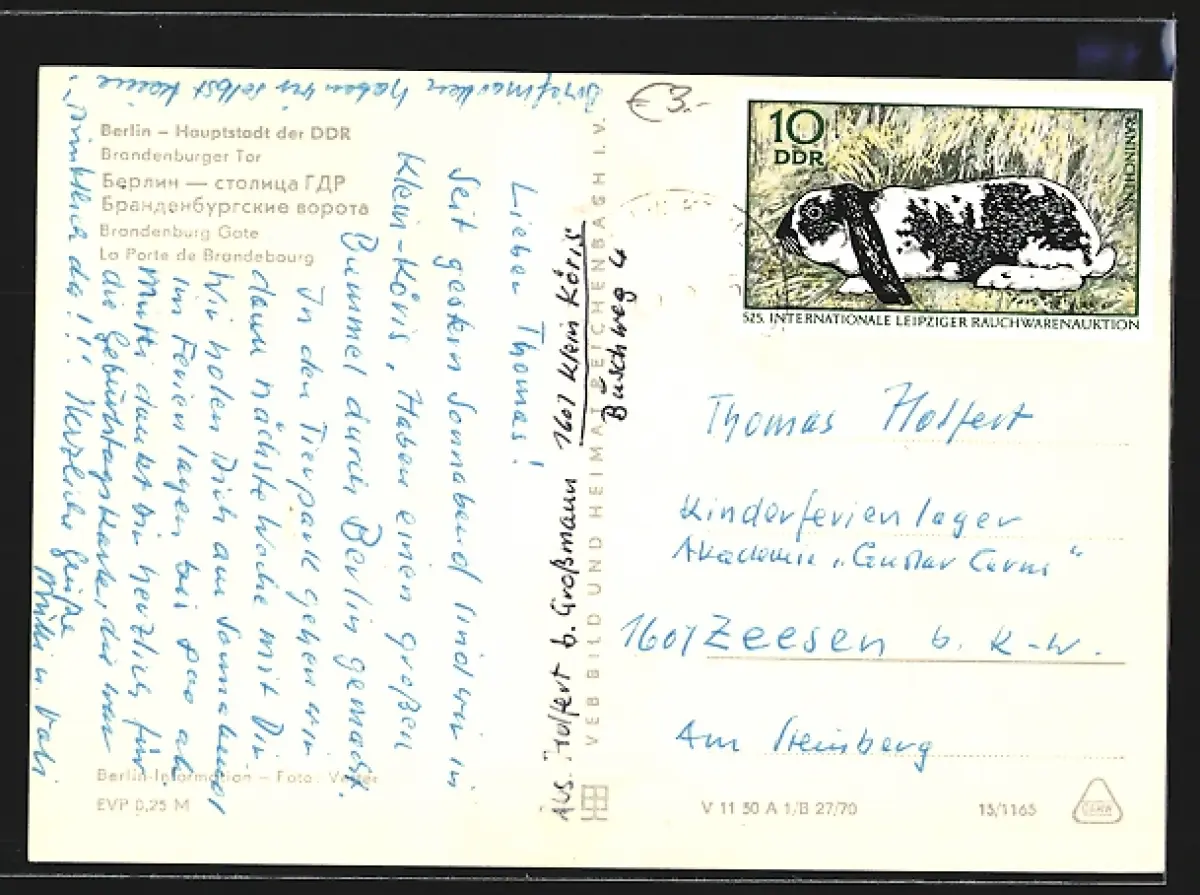 Briefmarken haben wir selbst keine
Berlin – Hauptstadt der DDR
Brandenburger Tor
Берлин — столица ГДР
Бранденбургские ворота
Brandenburg Gate
La Porte de Brandebourg
Lieber Thomas!
Seit gestern Sonnabend sind wir in
Klein-Köris, Haben einen großen
Bummel durch Berlin gemacht.
In den Tierpark gehen wir
dann nächste Woche mit Dir
Wir holen Dich am Sonnabend
im Ferienlager bei ab.
Mutti dankt Dir herzlich für
die Geburtstagskarte, die war
pünktlich da!!! Herzliche Grüße
Mutti u. Vati
Berlin-Information – Foto: Vetter
EVP 0,25 M
Abs. Holfert b. Großmann 1607 Klein Köris
Buschweg 4
VEB BILD UND HEIMAT REICHENBACH I. V.
€3.-
10
DDR
KANINCHEN
525. INTERNATIONALE LEIPZIGER RAUCHWARENAUKTION
Thomas Holfert
Kinderferienlager
Akademie "
1607 Zeesen b. K-W.
Am Steinberg
V 11 50 A 1/B 27/70
13/1165